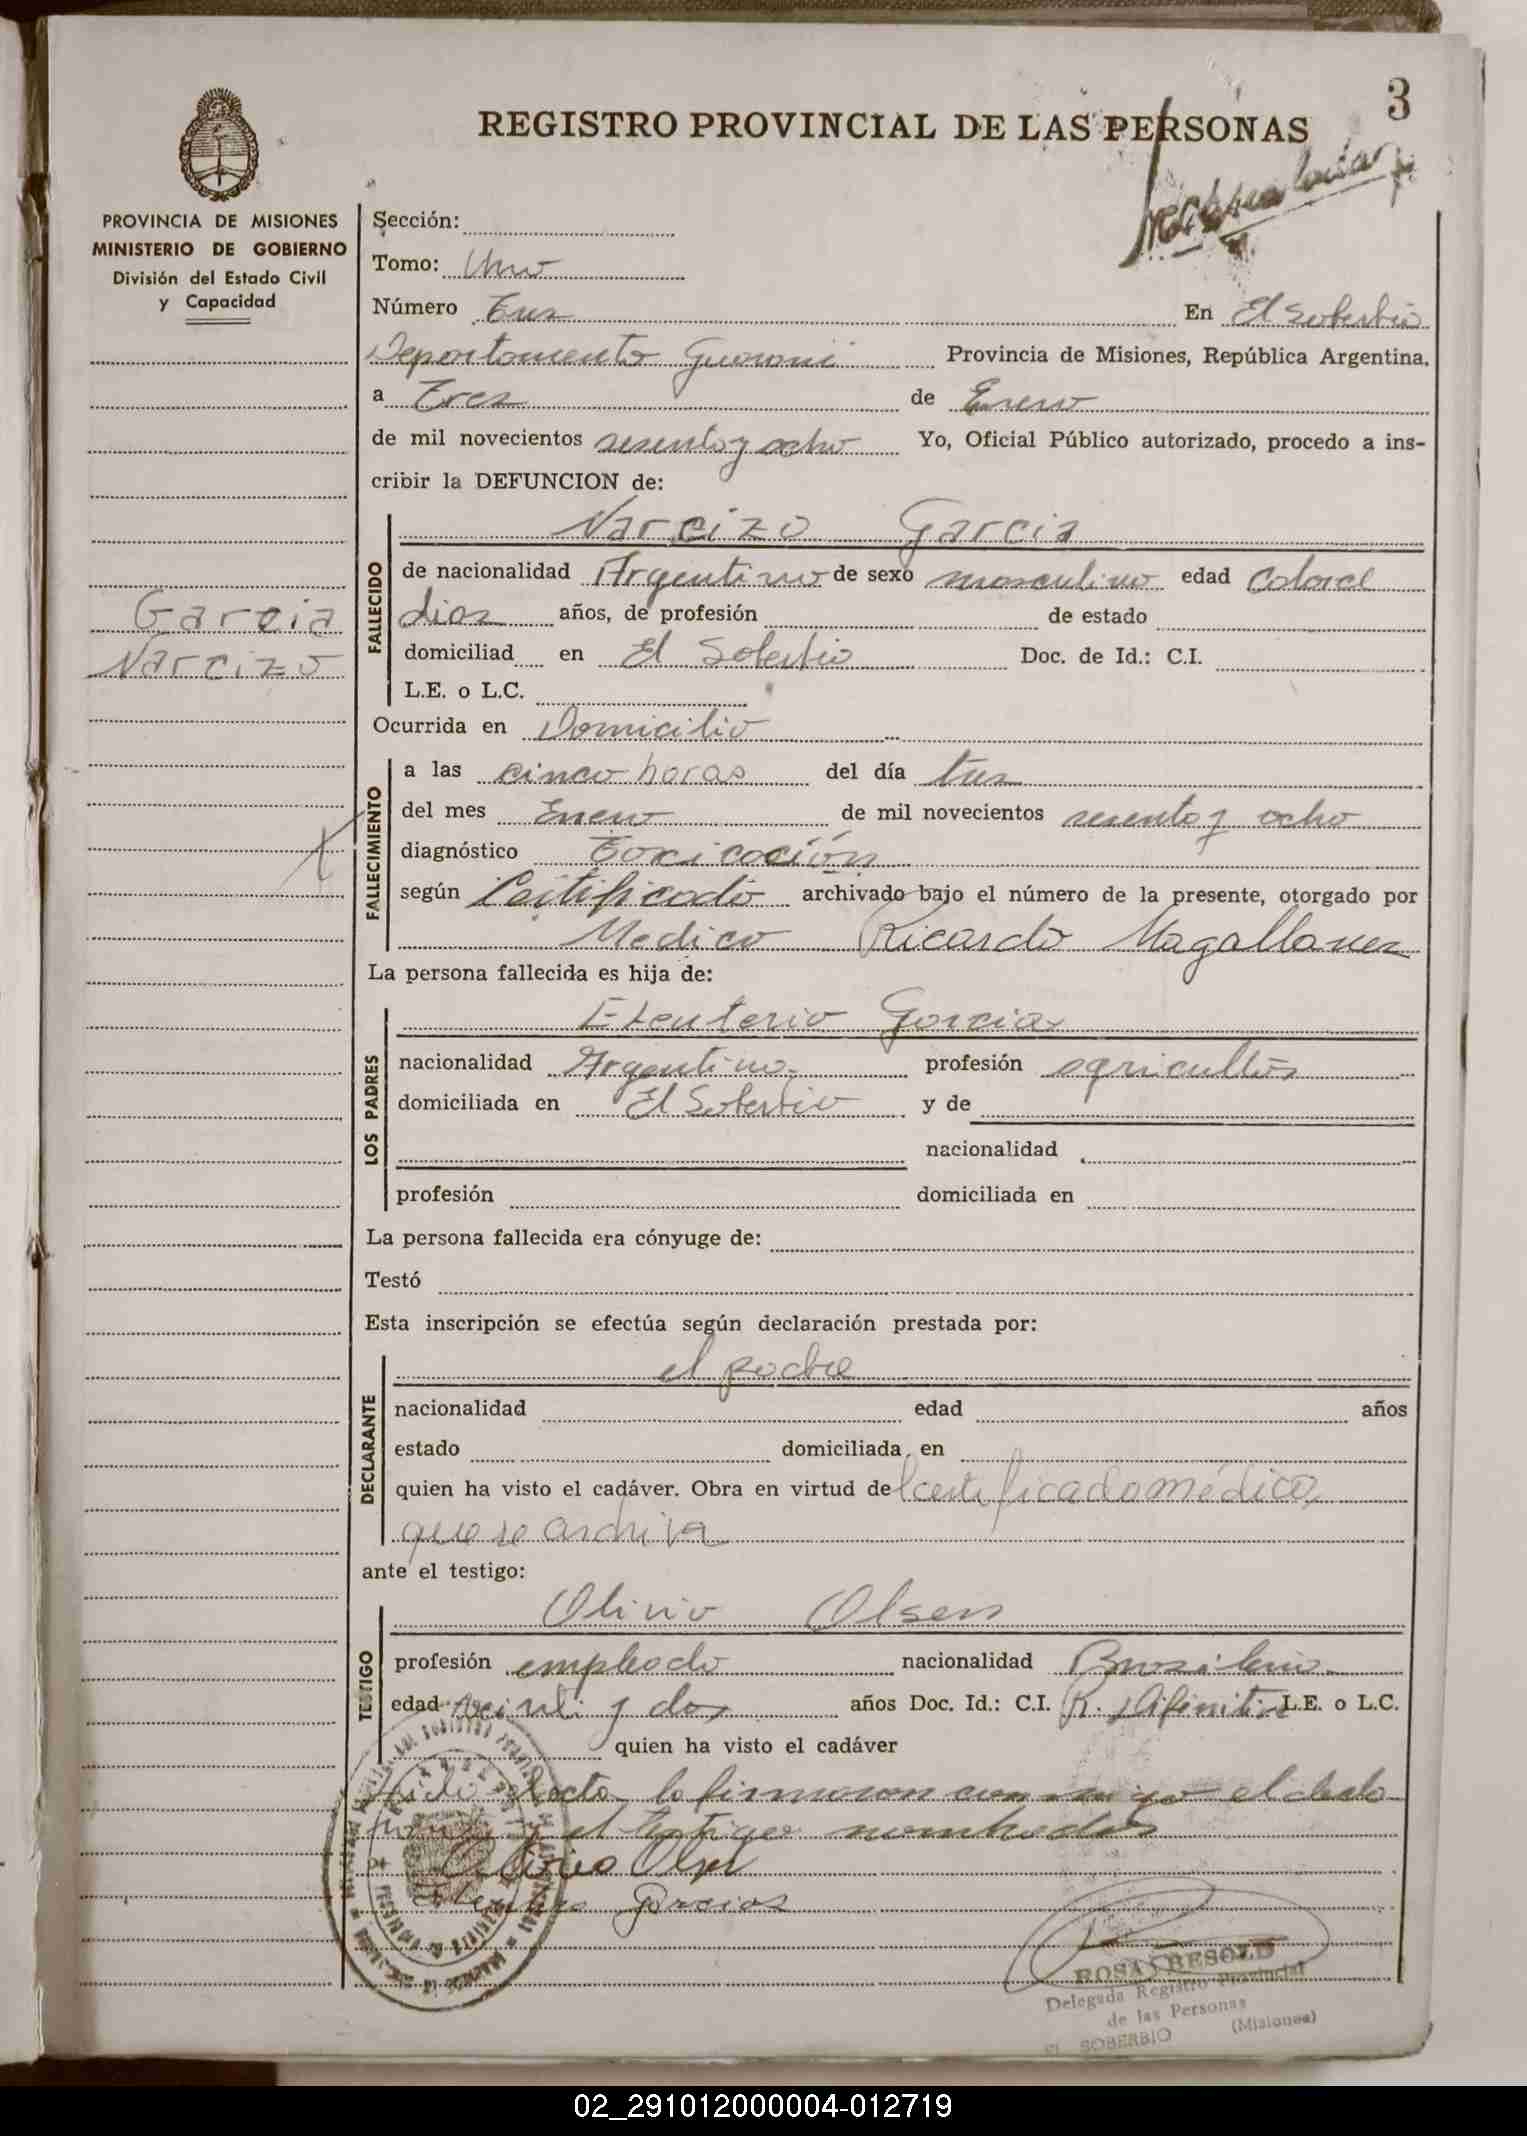 3
REGISTRO PROVINCIAL DE LAS PERSONAS
PROVINCIA DE MISIONES
MINISTERIO DE GOBIERNO
División del Estado Civil
y Capacidad
Sección:
Tomo: Uno
Número Tres En El Soberbio
Departamento Guarani Provincia de Misiones, República Argentina.
a Tres de Enero
de mil novecientos sesenta y ocho Yo, Oficial Público autorizado, procedo a ins-
cribir la DEFUNCION de:
Garcia
Narcizo
FALLECIDO
Narcizo Garcia
de nacionalidad Argentino de sexo masculino edad
dias años, de profesión de estado
domiciliad en El Soberbio Doc. de Id.: C.I.
L.E. o L.C.
Ocurrida en Domicilio
FALLECIMIENTO
a las cinco horas del día tres
del mes Enero de mil novecientos sesenta y ocho
diagnóstico Toxicación
según Certificado archivado bajo el número de la presente, otorgado por
Medico Ricardo Magallanes
La persona fallecida es hija de:
LOS PADRES
Eleuterio Garcia
nacionalidad Argentino profesión agricultor
domiciliada en El Soberbio y de
nacionalidad
profesión domiciliada en
La persona fallecida era cónyuge de:
Testó
Esta inscripción se efectúa según declaración prestada por:
DECLARANTE
el padre
nacionalidad edad años
estado domiciliada en
quien ha visto el cadáver. Obra en virtud del certificado médico
que se archiva
ante el testigo:
TESTIGO
Olinio Olsen
profesión empleado nacionalidad Brasilero
edad veinti y dos años Doc. Id.: C.I. R. Difinitiva L.E. o L.C.
quien ha visto el cadáver
acta la firmaron con migo el decla
el testigo nombrados
Olsen
Garcia
ROSA BESOLD
Delegada Registro Provincial
de las Personas
EL SOBERBIO (Misiones)
02_291012000004-012719